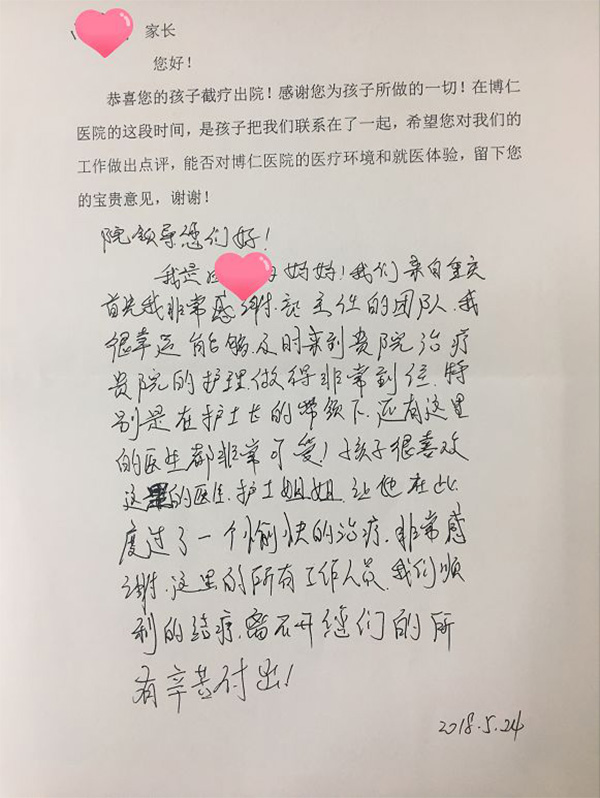 家长
您好！
恭喜您的孩子截疗出院！感谢您为孩子所做的一切！在博仁
医院的这段时间，是孩子把我们联系在了一起，希望您对我们的
工作做出点评，能否对博仁医院的医疗环境和就医体验，留下您
的宝贵意见，谢谢！
院领导您们好！
我是 妈妈！我们来自重庆
首先我非常感谢 主任的团队.我
很幸运能够及时来到贵院治疗
贵院的护理.做得非常到位.特
别是在护士长的带领下.还有这里
的医生都非常可爱！孩子很喜欢
这里的医生.护士姐姐.让他在此
度过了一个愉快的治疗.非常感
谢.这里的所有工作人员.我们顺
利的 疗.离不开 们的所
有辛苦付出！
2018.5.24